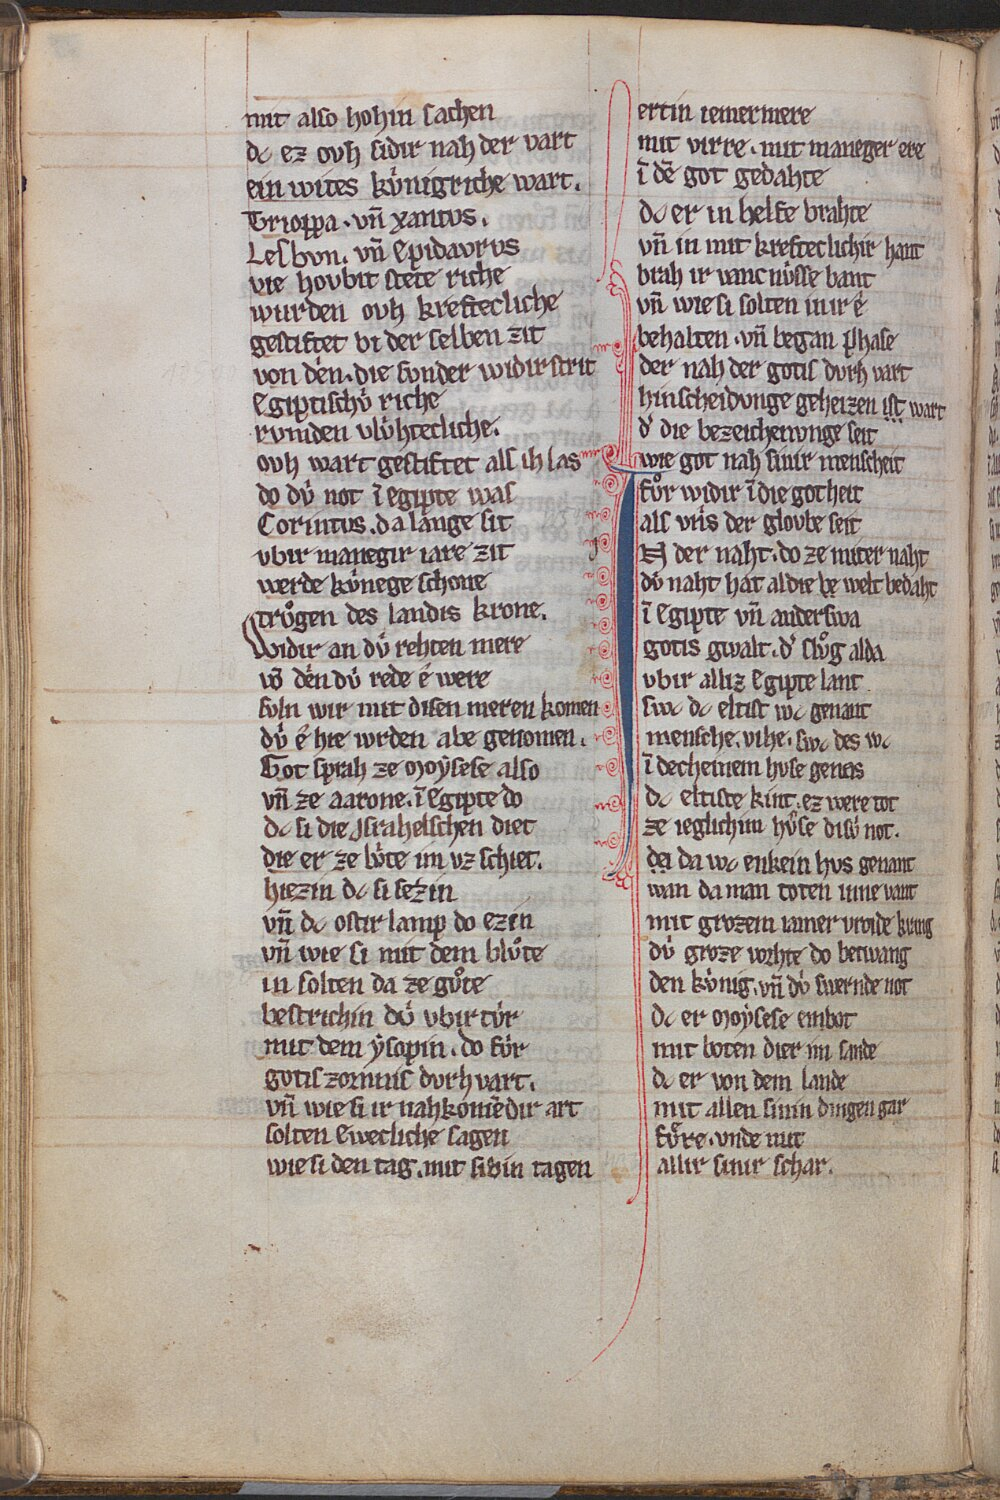 mit also hohin sachen
dc ez ovh sidir nah der vart
ein wites kv́nigriche wart.
Trioppa. vn̄ xantus.
Lesbvn. vn̄ Epidavrvs
vie hovbit stete riche
wurden ovh kreftecliche
gestiftet bi der selben zit
von dén. die svnder widir strit
Egiptischv́ riche
rvmden vlv́htecliche.
ovh wart gestiftet als ih las
do dv́ not ī egipte was
Corintus. da lange sit
vbir manegir iare zit
werde kv́nege schone
trv̊gen des landis krone.
Widir an dv́ rehten mere
vō dén dv́ rede é were
svln wir mit disen meren komen
dv́ é hie wrden abe genomen.
Got sprah ze moẏsese also
vn̄ ze aarone. ī egipte do
dc si die Jsrahelschen diet
die er ze lv́te im vz schiet.
hiezin dc si sezin
vn̄ dc ostir lamp do ezin
vn̄ wie si mit dem blv̊te
in solten da ze gv̊te
bestrichin dv́ vbir tv́r
mit dem ẏsopin. do fv́r
gotis zornnis dvrh vart.
vn̄ wie si ir nahkomēdir art
solten Ewecliche sagen
wie si den tag. mit sibin tagen
ertin iemermere
mit virre. mit maneger ere
ī dē got gedahte
dc er in helfe brahte
vn̄ in mit krefteclichir hant
brah ir vancnv́sse bant
vn̄ wie si solten iuir é
behalten. vn̄ began phase
der nah der gotis dvrh vart
hinscheidvnge geheizen ist wart
d' die bezeichenvnge seit
wie got nah sinir menscheit
fv̊r widir ī die gotheit
als vn̄s der glovbe seit
IN der naht. do ze miter naht
dv́ naht hat al die be welt bedaht
ī Egipte vn̄ anderswa
gotis gwalt. d' slv̊g alda
vbir alliz Egipte lant
swc dc eltist wc genant
mensche. vihe. swc des wc
ī decheinem hvse genas
dc eltiste kint. ez were tot
ze ieglichim hv̂se disv́ not.
da da wc enkein hvs genant
wan da man toten inne vant
mit grozem iamer vroide krang
dv́ groze vorhte do betwang
den kv́nig. vn̄ dv́ swernde not
dc er moẏsese enbot
mit boten dier im sande
dc er von dem lande
mit allen sinin dingen gar
fv̊re. vnde mit
allir sinir schar.